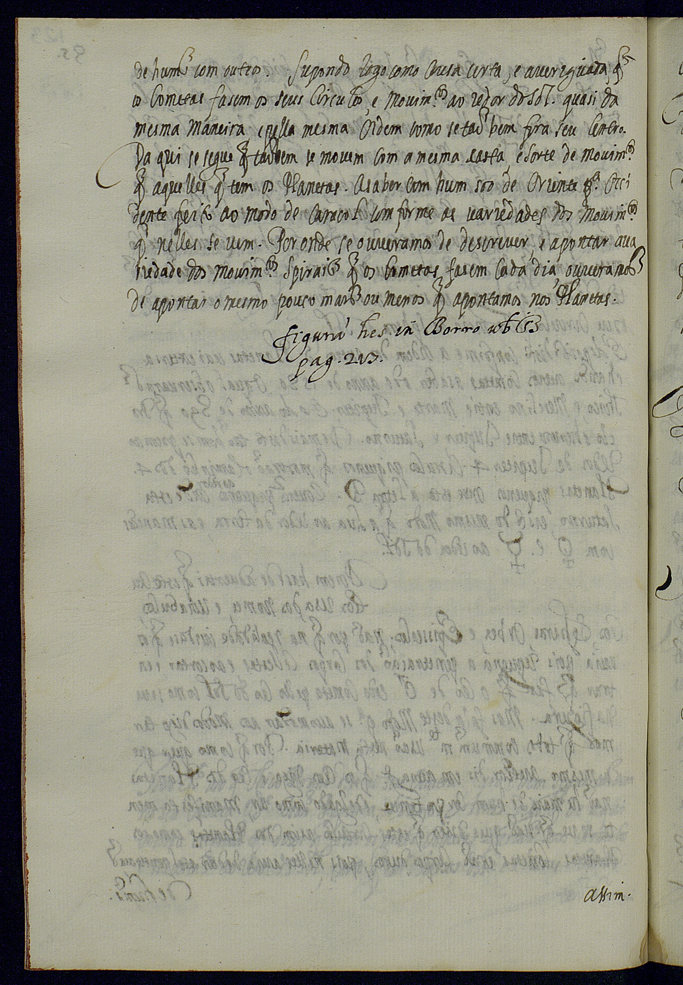 de hum^s com outros. Supondo logo como cousa certa, e averiguada, q̃
os Cometas fasem os seus Circulos e Movim.^tos ao redor do Sol. quasi da
mesma Maneira, e pella mesma Ordem como se tãbem fora seu Centro.
Daqui se segue q̃ tãbem se movem com a mesma casta e sorte de movim.^tos
q̃ aquelles q̃ tem os Planetas. Asaber com hum só de Oriente p.^a Oci
dente feito ao modo de Caracol conforme as variedades dos Movim.^tos
q̃ nelles se vem. Por onde se ouveramos de descrever, e apontar a va
riedade dos movim.^tos Spirais q̃ os Cometas fasem cada dia ouveramos
de apontar o mesmo pouco mais ou menos q̃ apontamos nos Planetas.
figura hes in Borro
pag. 213.
assim.